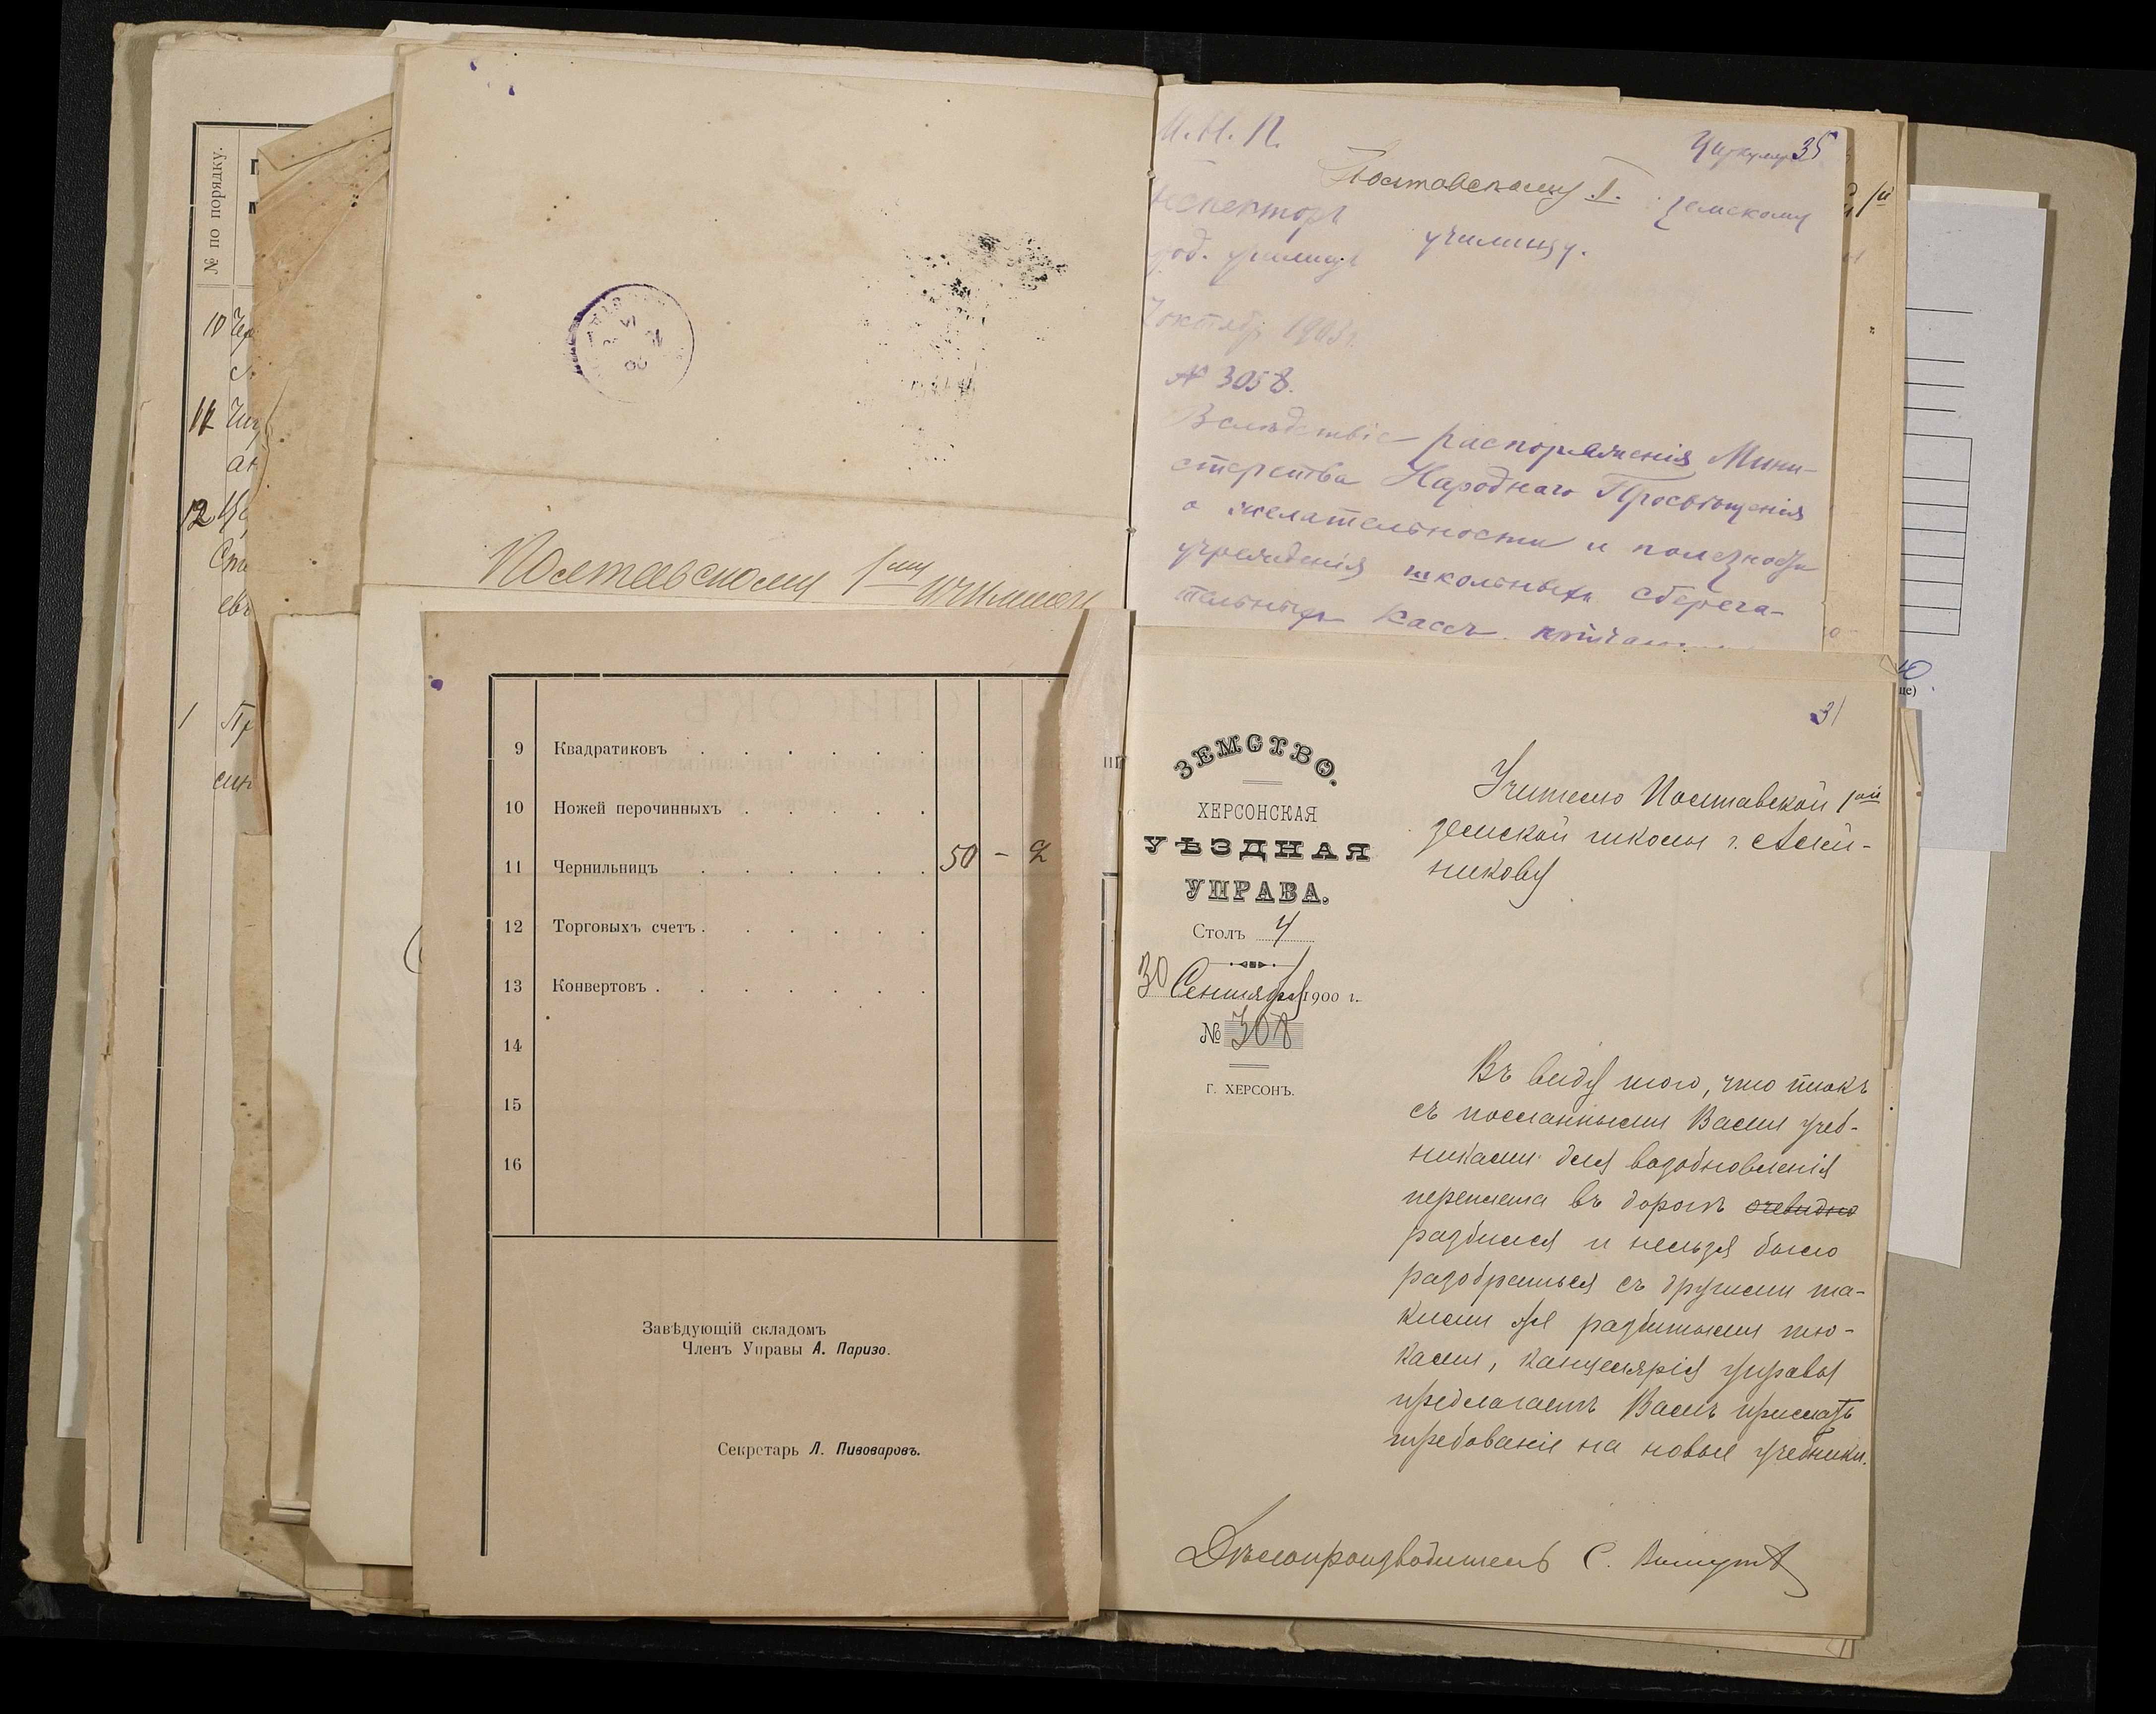 № по порядку.
10
11
12
1
Полтавскому 1му
9 Квадратиковъ
10 Ножей перочинныхъ
11 Чернильницъ 50 - 2
12 Торговыхъ счетъ
13 Конвертовъ
14
15
16
Завѣдующій складомъ
Членъ Управы А. Паризо.
Секретарь Л. Пивоваровъ.
М. Н. П.
35
Полтавскому I. земскому
училищу.
училищъ
октябр 1903 г.
№ 3058.
Вслѣдствіе распоряженія Мини-
стерства Народнаго Просвѣщенія
о желательности и полезности
учрежденія школьныхъ сберега-
тельныхъ кассъ
31
ЗЕМСТВО.
ХЕРСОНСКАЯ
УѢЗДНАЯ
УПРАВА.
Столъ 4
30 Сентября 1900 г.
№ 308
Г. ХЕРСОНЪ.
Учителю Полтавской 1ой
земской школы г. Алей-
никову
Въ виду того, что тюкъ
съ посланными Вами учеб-
никами для возобновленія
переплета въ дорогѣ очевидно
разбился и нельзя было
разобраться съ другими та-
кими же разбитыми тю-
ками, канцелярія управы
предлагаетъ Вамъ прислать
требованіе на новые учебники.
Дѣлопроизводитель С.